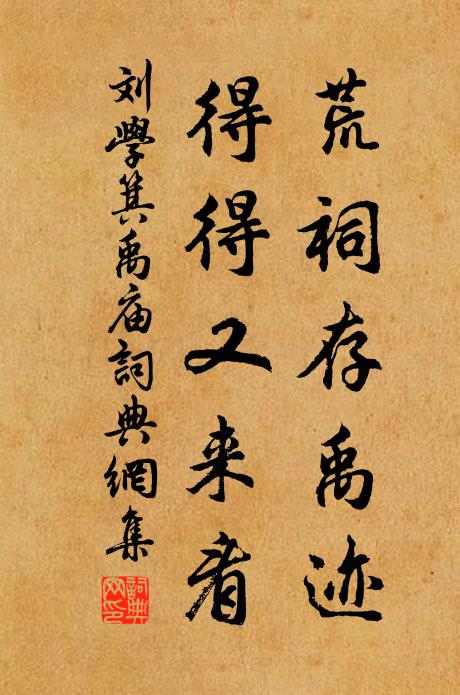 荒祠存禹迹
得得又来看
刘學箕禹庙詞典網集
詞典网印